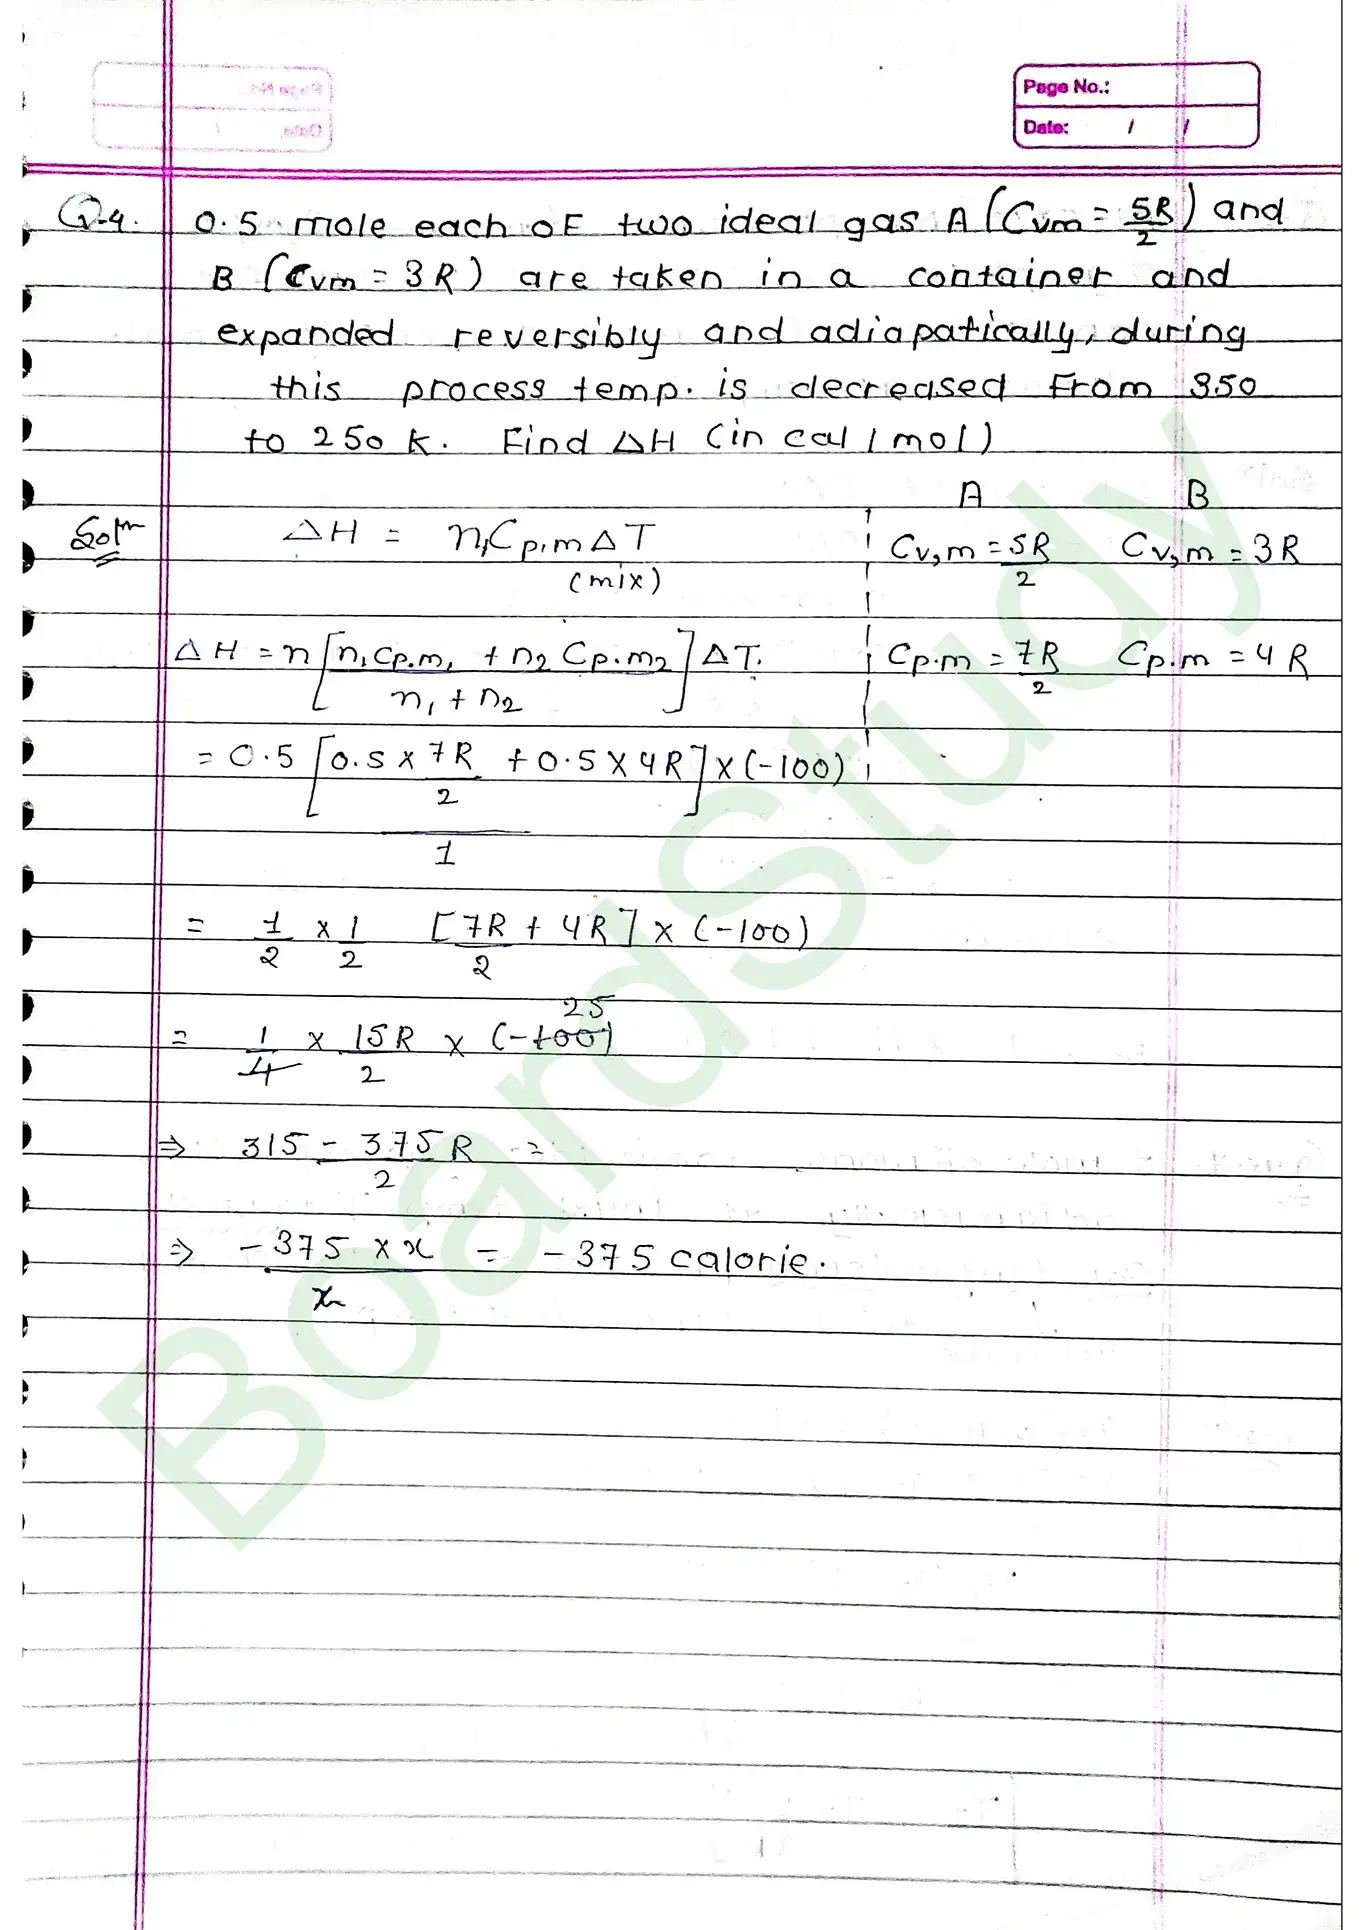 Page No.:
Date: / /
Q.4. 0.5 mole each of two ideal gas A (Cvm = 5R/2) and
B (Cvm = 3R) are taken in a container and
expanded reversibly and adiapatically, during
this process temp. is decreased from 350
to 250 K. Find ΔH (in cal/mol)
A B
Soln ΔH = n,Cp,mΔT Cv,m = 5R/2 Cv,m = 3R
(mix)
ΔH = n [n1Cp.m1 + n2 Cp.m2 / n1 + n2] ΔT. Cp.m = 7R/2 Cp.m = 4R
= 0.5 [0.5 x 7R/2 + 0.5 x 4R] x (-100)
1
= 1/2 x 1/2 [7R/2 + 4R] x (-100)
25
= 1/4 x 15R/2 x (-100)
⇒ 315 - 375R/2 =
⇒ -375 x x/x = -375 calorie.
BoardStudy